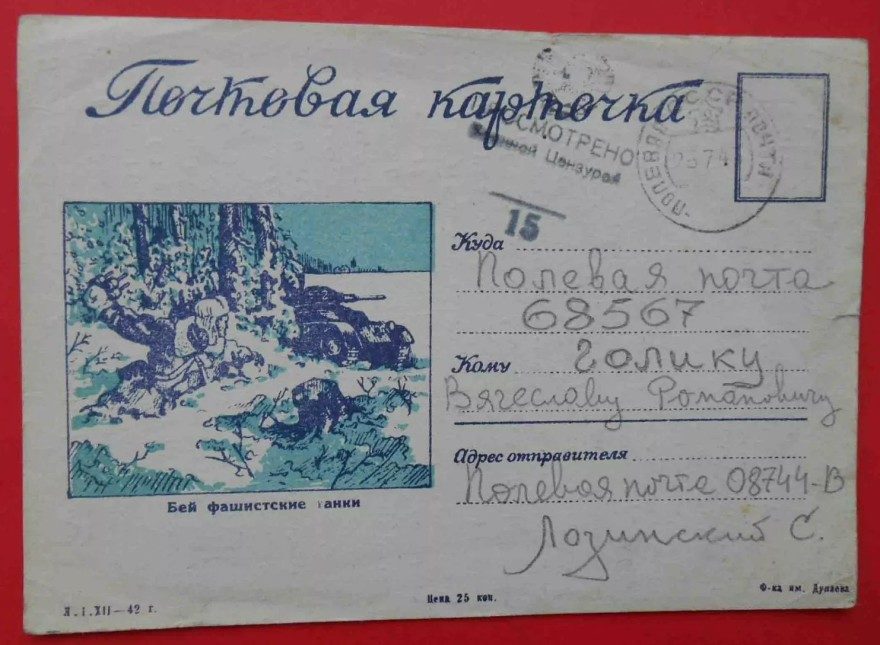 Почтовая карточка
ПРОСМОТРЕНО
Военной Цензурой
15
СССР
ПОЛЕВАЯ ПОЧТА
Куда Полевая почта
68567
Кому Голику
Вячеславу Романовичу
Адрес отправителя
Полевая почта 08744-В
Лозинский С.
Бей фашистские танки
Л.1.XII—42 г.
Цена 25 коп.
Ф-ка им. Дунаева